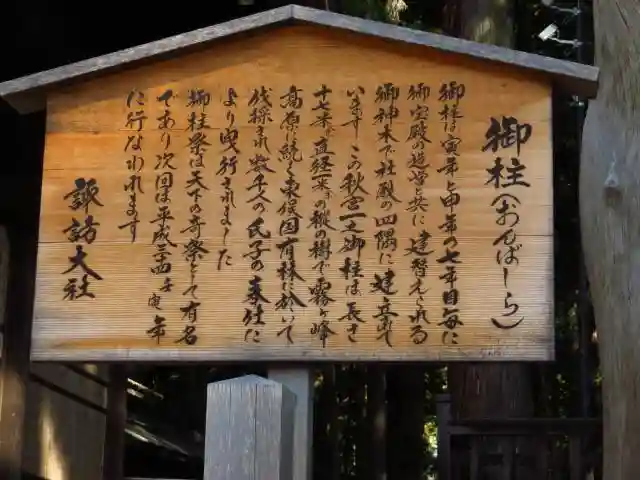 御柱(おんばしら)
御柱は寅年と申年の七年目毎に
御宝殿の造営と共に建替えられる
御神木で社殿の四隅に建立されて
います この秋宮一之御柱は長さ
十七米、直径一米、の樅の樹で霧ヶ峰
高原に続く東俣国有林に於いて
伐採され数千人の氏子の奉仕に
より曳行されました
御柱祭は天下の奇祭として有名
であり次回は平成三四年寅年
に行なわれます
諏訪大社